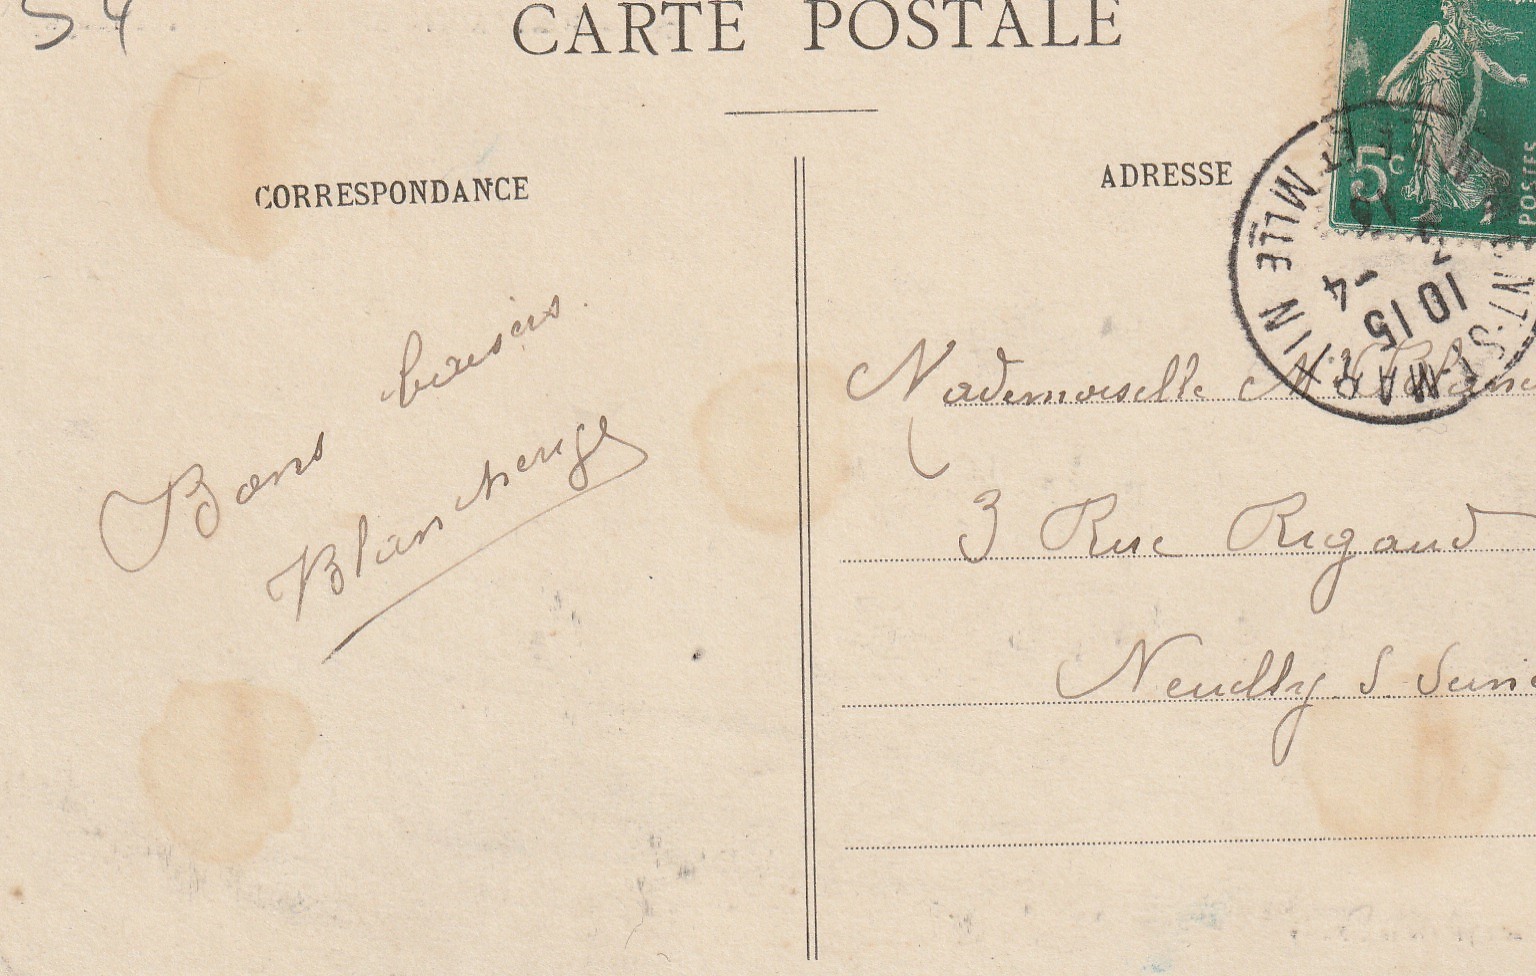 54
CARTE POSTALE
CORRESPONDANCE
ADRESSE
5c
POSTES
ST-MARTIN MLLE ET M
10 15
-4
Bons baisers.
Mademoiselle
3 Rue Rigaud
Neuilly S. Seine